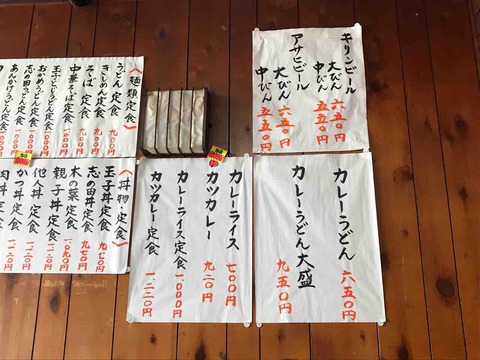 キリンビール
大びん 六五〇円
中びん 五五〇円
アサヒビール
大びん 六五〇円
中びん 五五〇円
カレーうどん 六五〇円
カレーうどん大盛 九五〇円
カレーライス 七〇〇円
カツカレー 九二〇円
カレーライス定食 一〇〇〇円
カツカレー定食 一二二〇円
〈麺類定食〉
うどん定食
きしめん定食
そば定食
中華そば定食
玉子とじうどん定食
おかめうどん定食
志の田うどん定食
あんかけうどん定食
〈丼物・定食〉
玉子丼定食 九七〇円
志の田丼定食 九七〇円
木の葉丼定食
親子丼定食
他人丼定食
かつ丼定食
肉丼定食